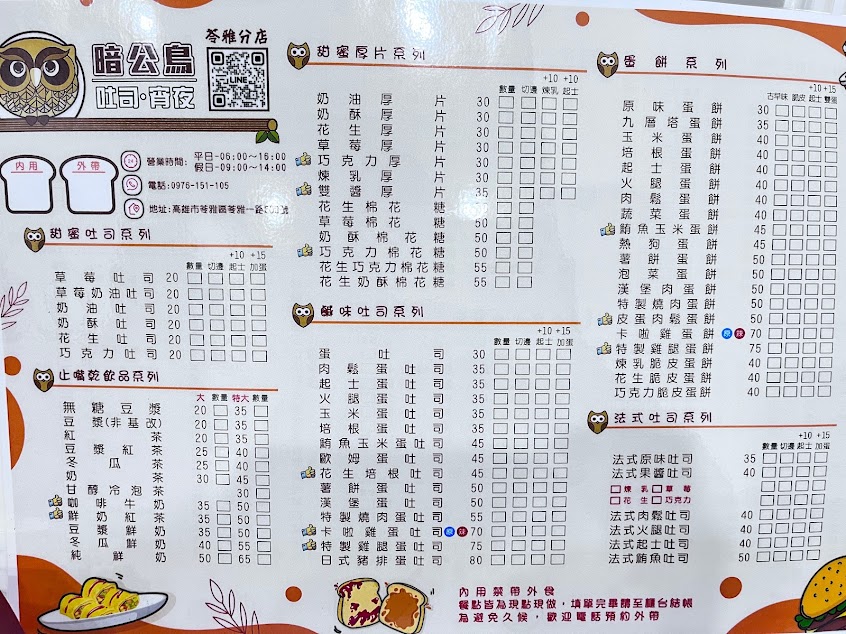 苓雅分店
暗公鳥
吐司·宵夜
LINE
內用
外帶
營業時間: 平日-06:00~16:00
假日-09:00~14:00
電話:0976-151-105
地址:高雄市苓雅區苓雅一路
甜蜜吐司系列
+10 +15
數量 切邊 起士 加蛋
草莓吐司 20
草莓奶油吐司 20
奶油吐司 20
奶酥吐司 20
花生吐司 20
巧克力吐司 20
止嘴乾飲品系列
大 數量 特大 數量
無糖豆漿 20 35
豆漿(非基改) 20 35
紅茶 20 35
豆漿紅茶 25 40
冬瓜茶 25 40
奶茶 30 45
甘醇冷泡茶 30
咖啡牛奶 35 50
鮮奶紅茶 35 50
豆漿鮮奶 35 50
冬瓜鮮奶 40 55
純鮮奶 50 65
甜蜜厚片系列
+10 +10
數量 切邊 煉乳 起士
奶油厚片 30
奶酥厚片 30
花生厚片 30
草莓厚片 30
巧克力厚片 30
煉乳厚片 30
雙醬厚片 35
花生棉花糖 50
草莓棉花糖 50
奶酥棉花糖 50
巧克力棉花糖 50
花生巧克力棉花糖 55
花生奶酥棉花糖 55
鹹味吐司系列
+10 +15
數量 切邊 起士 加蛋
蛋吐司 30
肉鬆蛋吐司 35
起士蛋吐司 35
火腿蛋吐司 35
玉米蛋吐司 35
培根蛋吐司 35
鮪魚玉米蛋吐司 45
歐姆蛋吐司 45
花生培根吐司 45
薯餅蛋吐司 50
漢堡蛋吐司 50
特製燒肉蛋吐司 50
卡啦雞蛋吐司 原 辣 70
特製雞腿蛋吐司 75
日式豬排蛋吐司 80
蛋餅系列
+10 +15
古早味 脆皮 起士 雙蛋
原味蛋餅 30
九層塔蛋餅 35
玉米蛋餅 40
培根蛋餅 40
起士蛋餅 40
火腿蛋餅 40
肉鬆蛋餅 40
蔬菜蛋餅 40
鮪魚玉米蛋餅 45
熱狗蛋餅 45
薯餅蛋餅 50
泡菜蛋餅 50
漢堡肉蛋餅 50
特製燒肉蛋餅 50
皮蛋肉鬆蛋餅 50
卡啦雞蛋餅 原 辣 70
特製雞腿蛋餅 75
煉乳脆皮蛋餅 40
花生脆皮蛋餅 40
巧克力脆皮蛋餅 40
法式吐司系列
+10 +15
數量 切邊 起士 加蛋
法式原味吐司 35
法式果醬吐司 40
煉乳 草莓
花生 巧克力
法式肉鬆吐司 40
法式火腿吐司 40
法式起士吐司 40
法式鮪魚吐司 50
內用禁帶外食
餐點皆為現點現做,填單完畢請至櫃台結帳
為避免久候,歡迎電話預約外帶